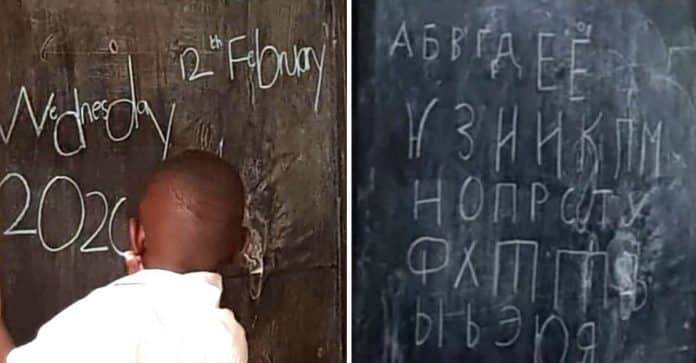 12th February
Wednesday
2020
А Б В Г Д Е Ё
З Н И К П М
Н О П Р С Т У
Ф Х
Ы Ь Э Ю Я